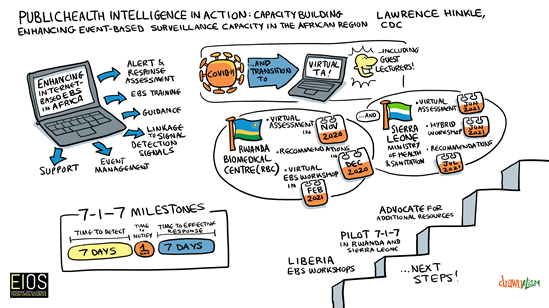 PUBLIC HEALTH INTELLIGENCE IN ACTION: CAPACITY BUILDING
ENHANCING EVENT-BASED SURVEILLANCE CAPACITY IN THE AFRICAN REGION
LAWRENCE HINKLE,
CDC
ENHANCING
INTERNET-
BASED EBS
IN AFRICA
ALERT &
RESPONSE
ASSESSMENT
EBS TRAINING
GUIDANCE
LINKAGE
TO SIGNAL
DETECTION
SIGNALS
EVENT
MANAGEMENT
SUPPORT
COVID-19
...AND
TRANSITION
TO
VIRTUAL
TA!
...INCLUDING
GUEST
LECTURERS!
RWANDA
BIOMEDICAL
CENTRE (RBC)
• VIRTUAL
ASSESSMENT
IN
NOV
2020
• RECOMMENDATIONS
IN
DEC
2020
• VIRTUAL
EBS WORKSHOP
IN
FEB
2021
...AND
SIERRA
LEONE
MINISTRY
OF HEALTH
& SANITATION
• VIRTUAL
ASSESSMENT
JUN
2021
• HYBRID
WORKSHOP
JUN
2021
• RECOMMENDATIONS
JUL
2021
7-1-7 MILESTONES
TIME TO DETECT
TIME
TO
NOTIFY
TIME TO EFFECTIVE
RESPONSE
7 DAYS
1
DAY
7 DAYS
LIBERIA
EBS WORKSHOPS
PILOT 7-1-7
IN RWANDA AND
SIERRA LEONE
ADVOCATE FOR
ADDITIONAL RESOURCES
...NEXT
STEPS!
EIOS
EPIDEMIC INTELLIGENCE
FROM OPEN SOURCES
drawnalism